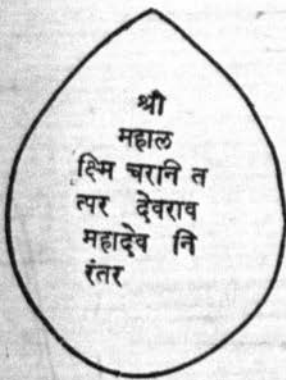 श्री
महाल
क्ष्मि चरानि त
त्पर देवराव
महादेव नि
रंतर